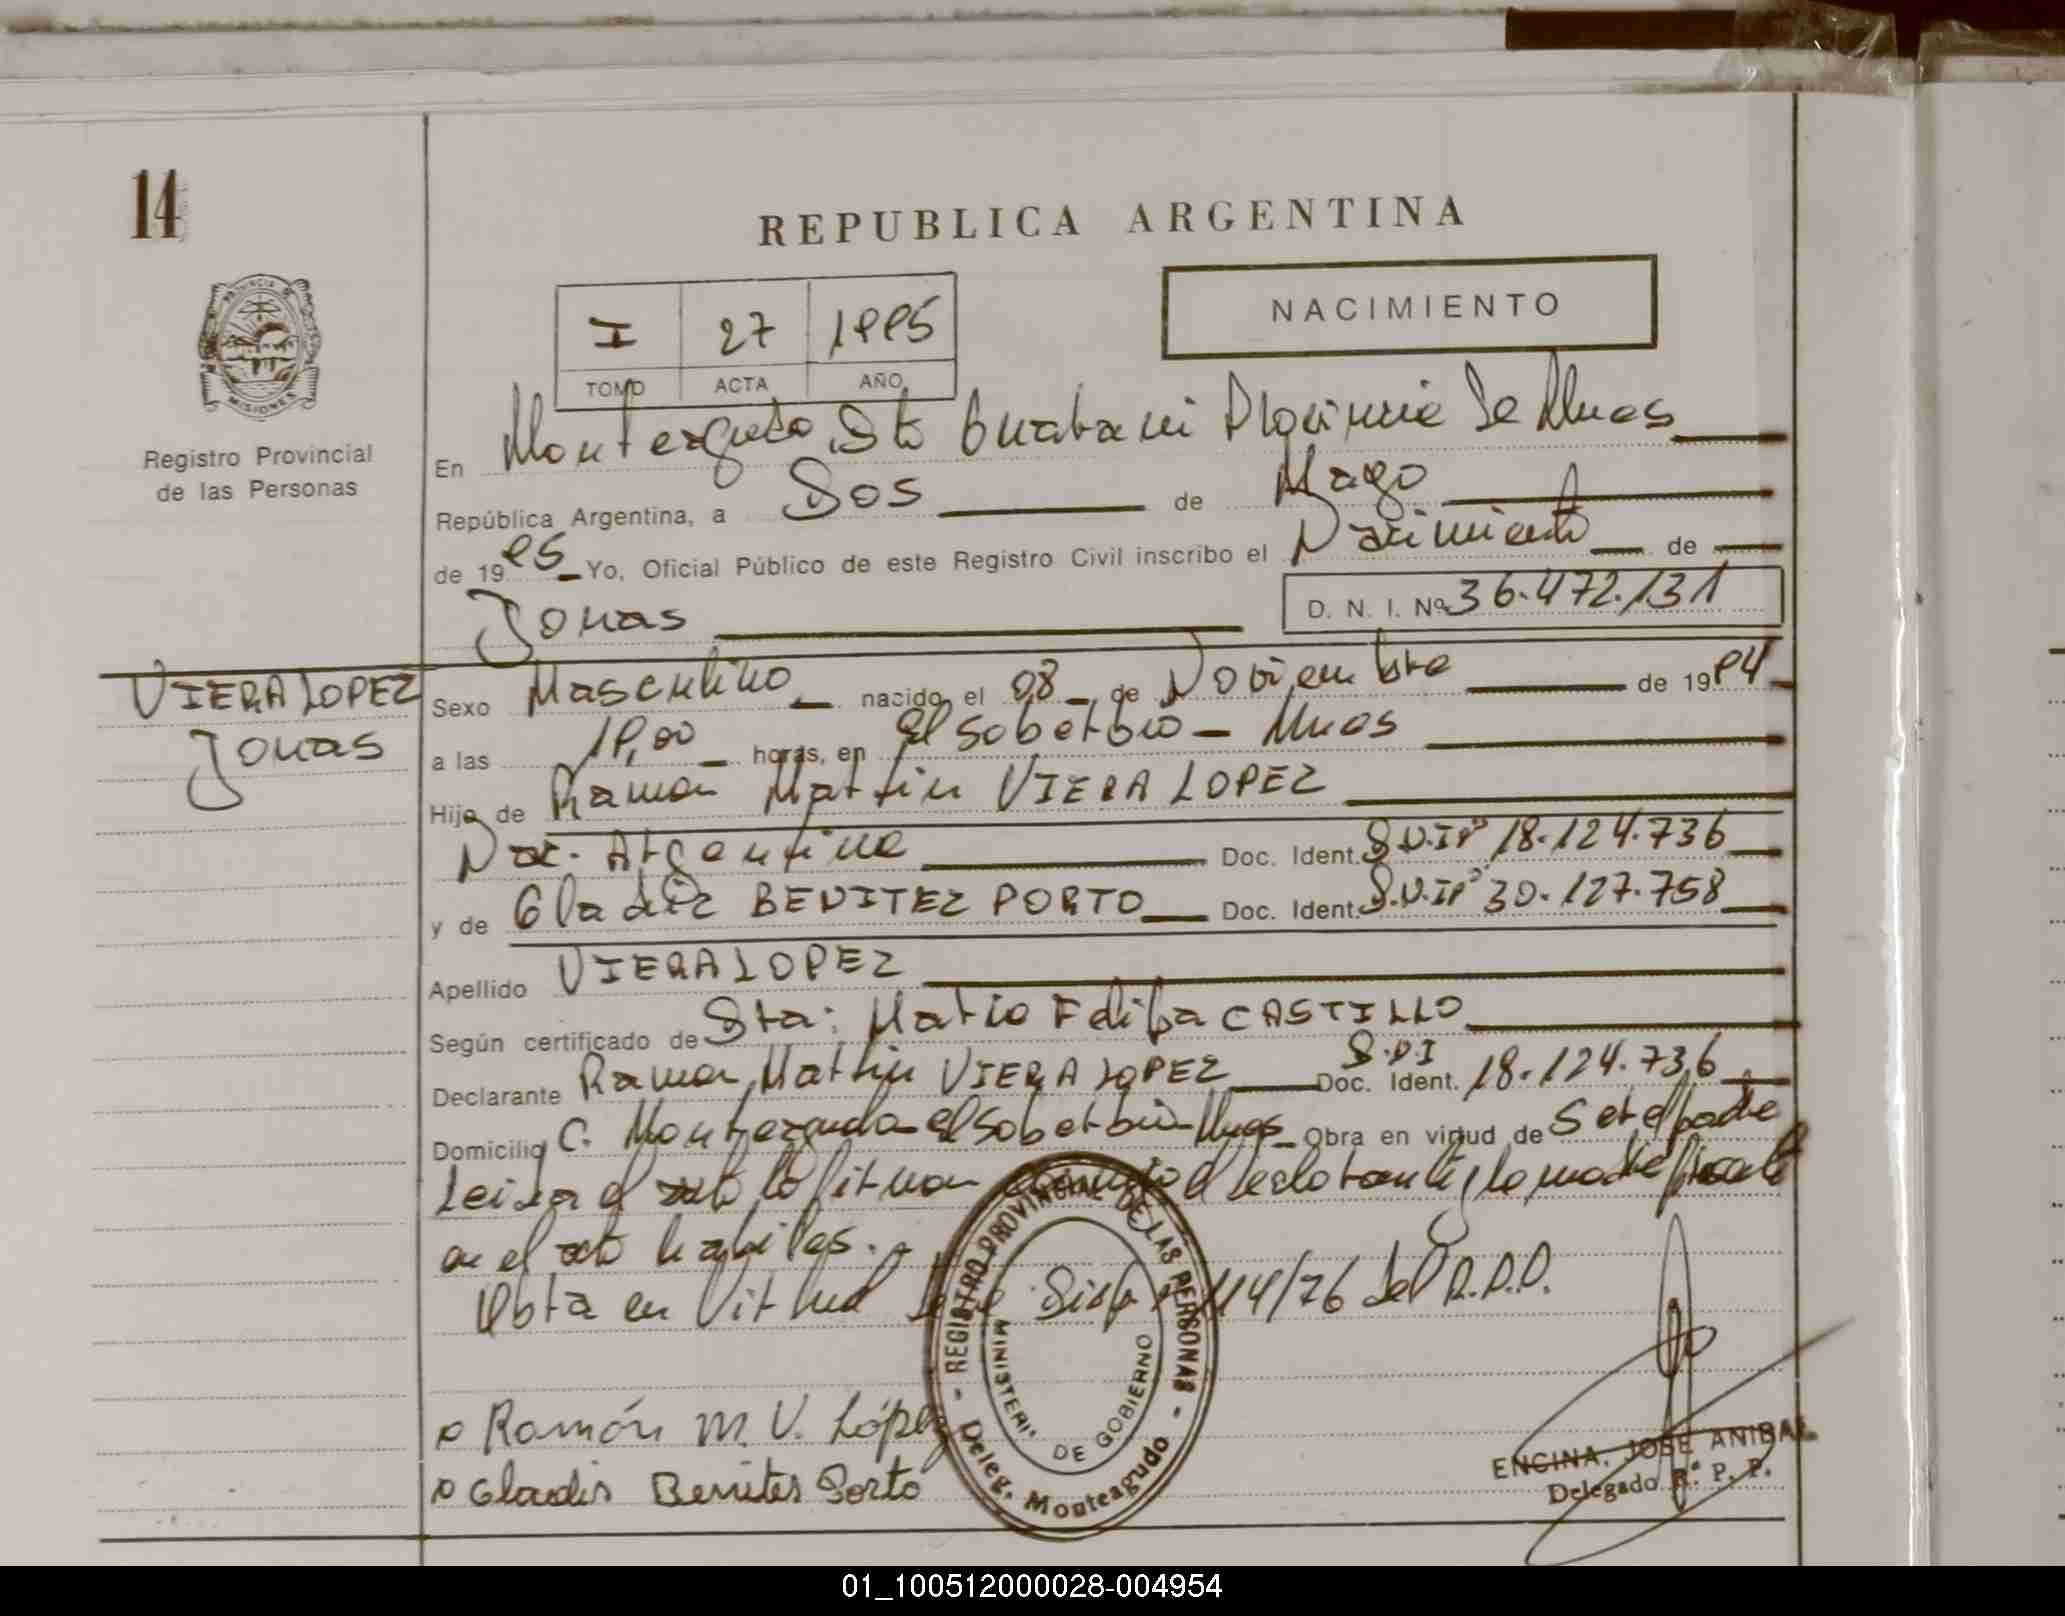 14
REPUBLICA ARGENTINA
NACIMIENTO
I 27 1995
TOMO ACTA AÑO
PROVINCIA DE
MISIONES
Registro Provincial
de las Personas
En Monteagudo Dto Guarani Provincia de Mnes
República Argentina, a Dos de Mayo
de 1995 Yo, Oficial Público de este Registro Civil inscribo el Nacimiento de
Jonas D. N. I. Nº 36.472.131
VIERA LOPEZ
Jonas
Sexo Masculino nacido el 08 de Noviembre de 1994
a las 19,00 horas, en El Soberbio - Mnes
Hijo de Ramon Martin VIERA LOPEZ
Nac. Argentina Doc. Ident. D.N.Iº 18.124.736
y de Gladiz BENITEZ PORTO Doc. Ident. D.N.Iº 30.127.758
Apellido VIERA LOPEZ
Según certificado de Dra: Maria CASTILLO
Declarante Ramon Martin VIERA LOPEZ Doc. Ident. D.N.I 18.124.736
Domicilio C. Monteagudo El Soberbio Mnes Obra en virtud de Ser el padre
Leida el acta la firman el declarante y la madre presente
en el acto habiles.
Obra en Virtud de la Disp. 114/76 del R.P.P.
REGISTRO PROVINCIAL DE LAS PERSONAS
MINISTERIO DE GOBIERNO
Deleg. Monteagudo
Ramón M. V. López
Gladis Benites Porto
ENCINA, JOSE ANIBAL
Delegado R. P. P.
01_100512000028-004954